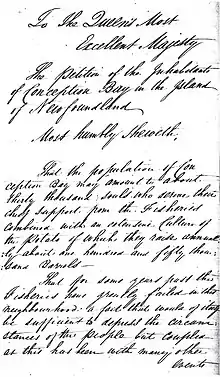 To The Queens Most
Excellent Majesty
The Petition of the Inhabitants
of Conception Bay in the Island
of Newfoundland
Most humbly Sheweth,
That the population of Con
ception Bay may amount to about
thirty thousand souls who derive their
chief support from the Fisheries
combined with an extensive Culture of
the Potato of which they raise annual
ly about one hundred and fifty thou
sand Barrels
That for some years past the
Fisheries have greatly failed in this
neighbourhood a fact that would of itself
be sufficient to depress the circum
stances of this people but coupled
as this has been with many other
events